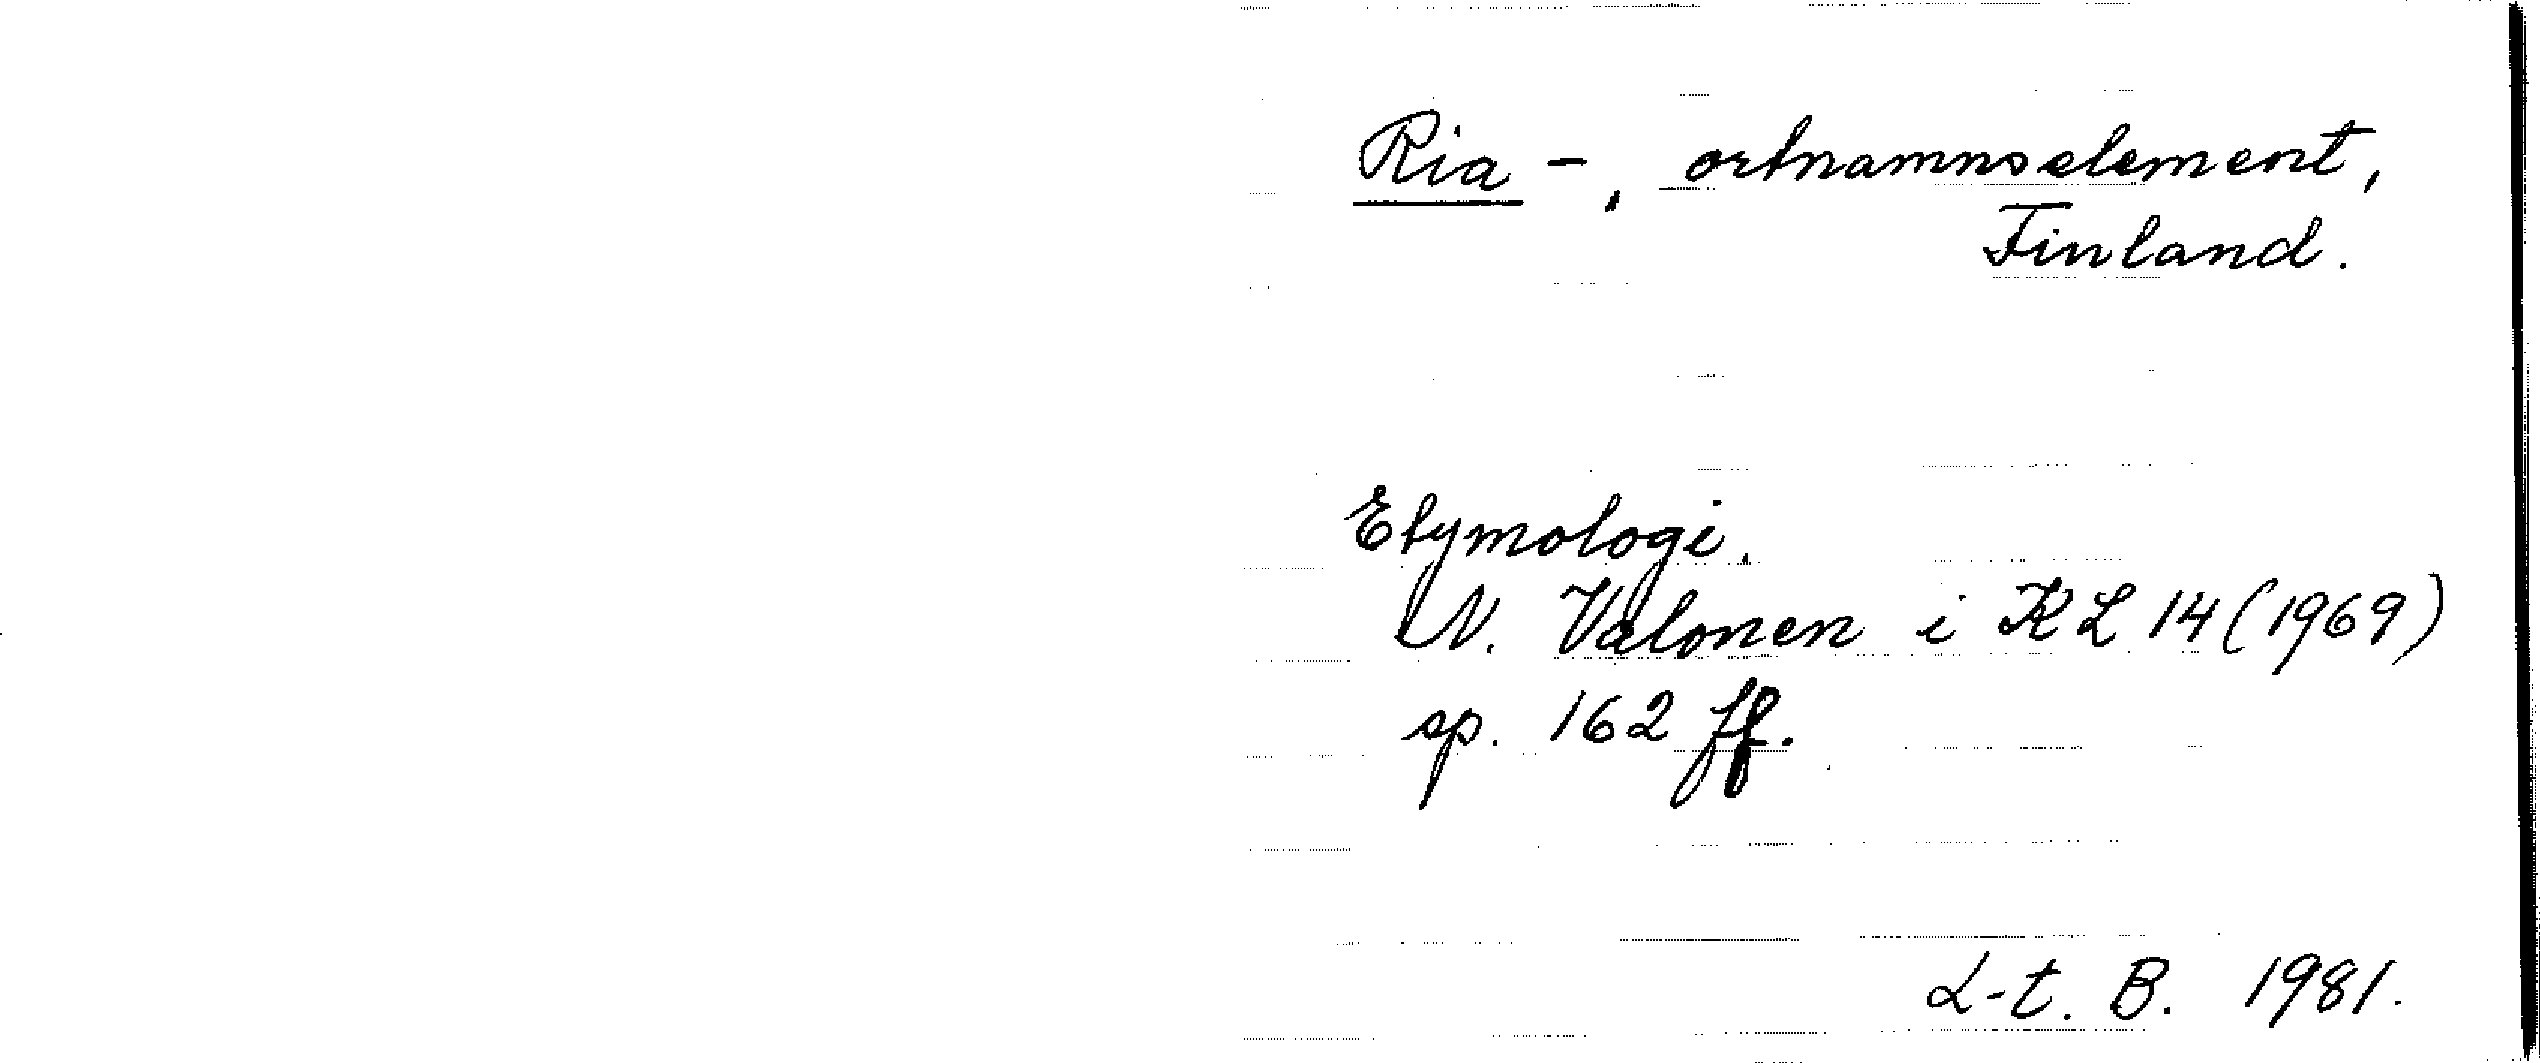 Ria -, ortnamnselement,
Finland.
Etymologi.
N. Valonen i KL 14 (1969)
sp. 162 ff.
L-t. B. 1981.